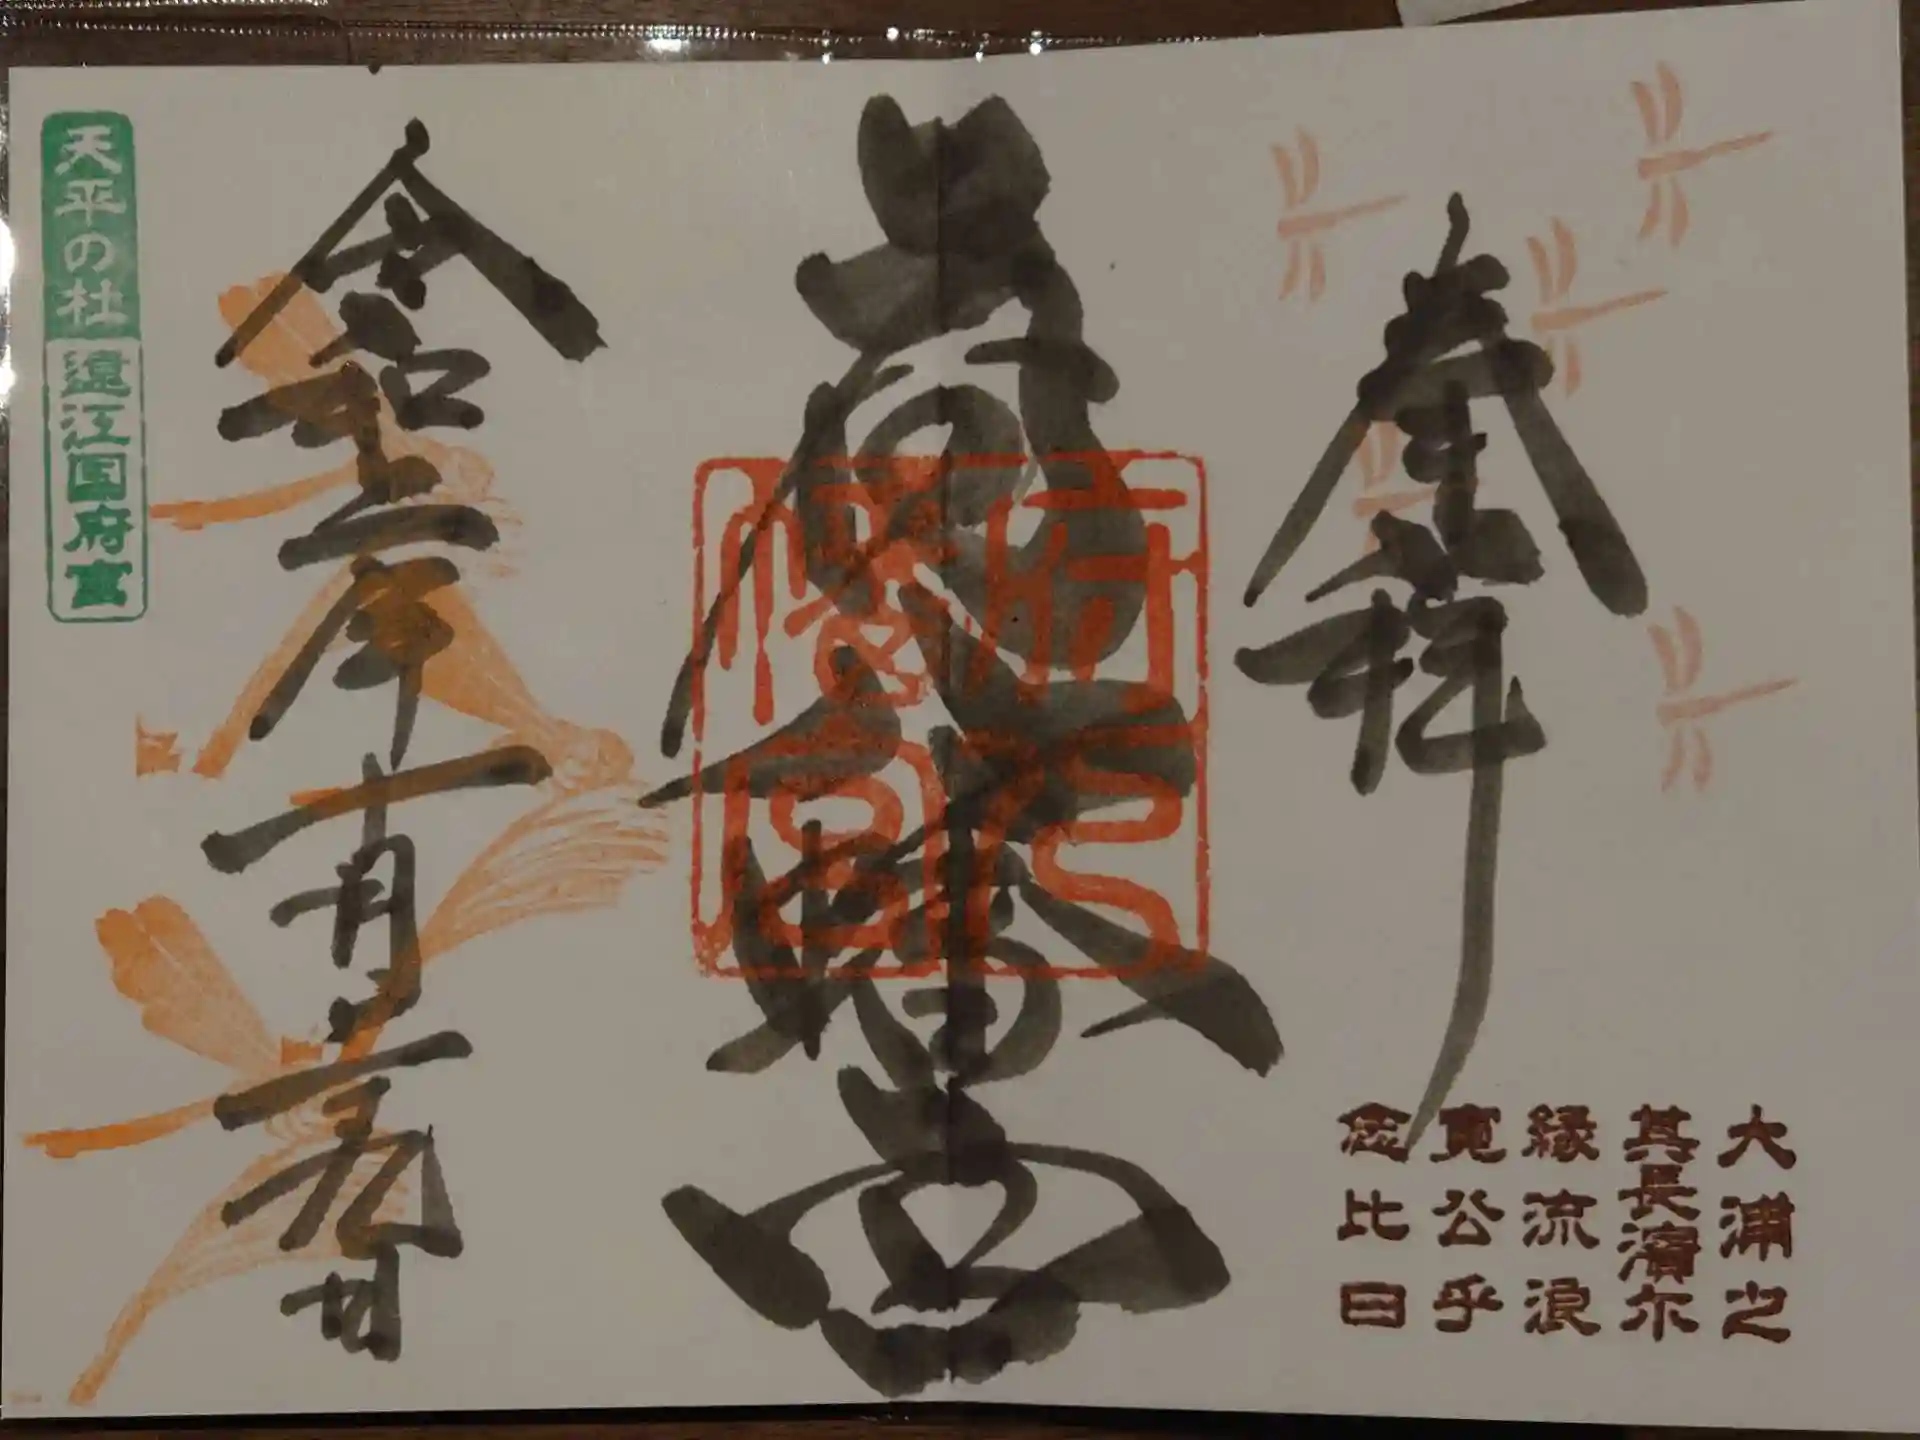 奉拝
大浦之
其長濱尓
縁流浪
寛公乎
念比日
府八幡宮
府八幡宮
令和 年十月 日
天平の杜 遠江国府宮